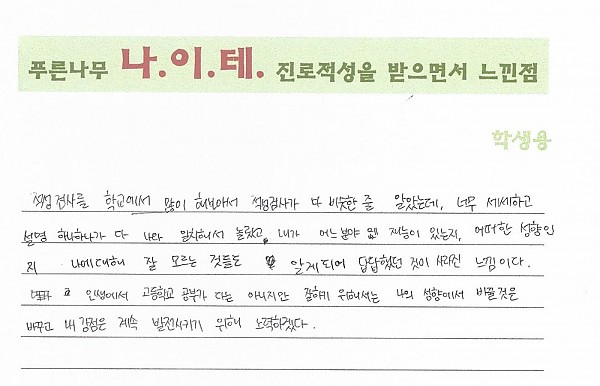 푸른나무 나.이.테. 진로적성을 받으면서 느낀점
학생용
적성검사를 학교에서 많이 해보아서 적성검사가 다 비슷한 줄 알았는데, 너무 세세하고
설명 하나하나가 다 나랑 일치해서 놀랐고, 내가 어느분야에 재능이 있는지, 어떠한 성향인
지 나에대해 잘 모르는 것들도 알게되어 답답했던 것이 사라진 느낌이다.
인생에서 고등학교 공부가 다는 아니지만 잘하기 위해서는 나의 성향에서 바꿀것은
바꾸고 내 강점은 계속 발전시키기 위해 노력하겠다.